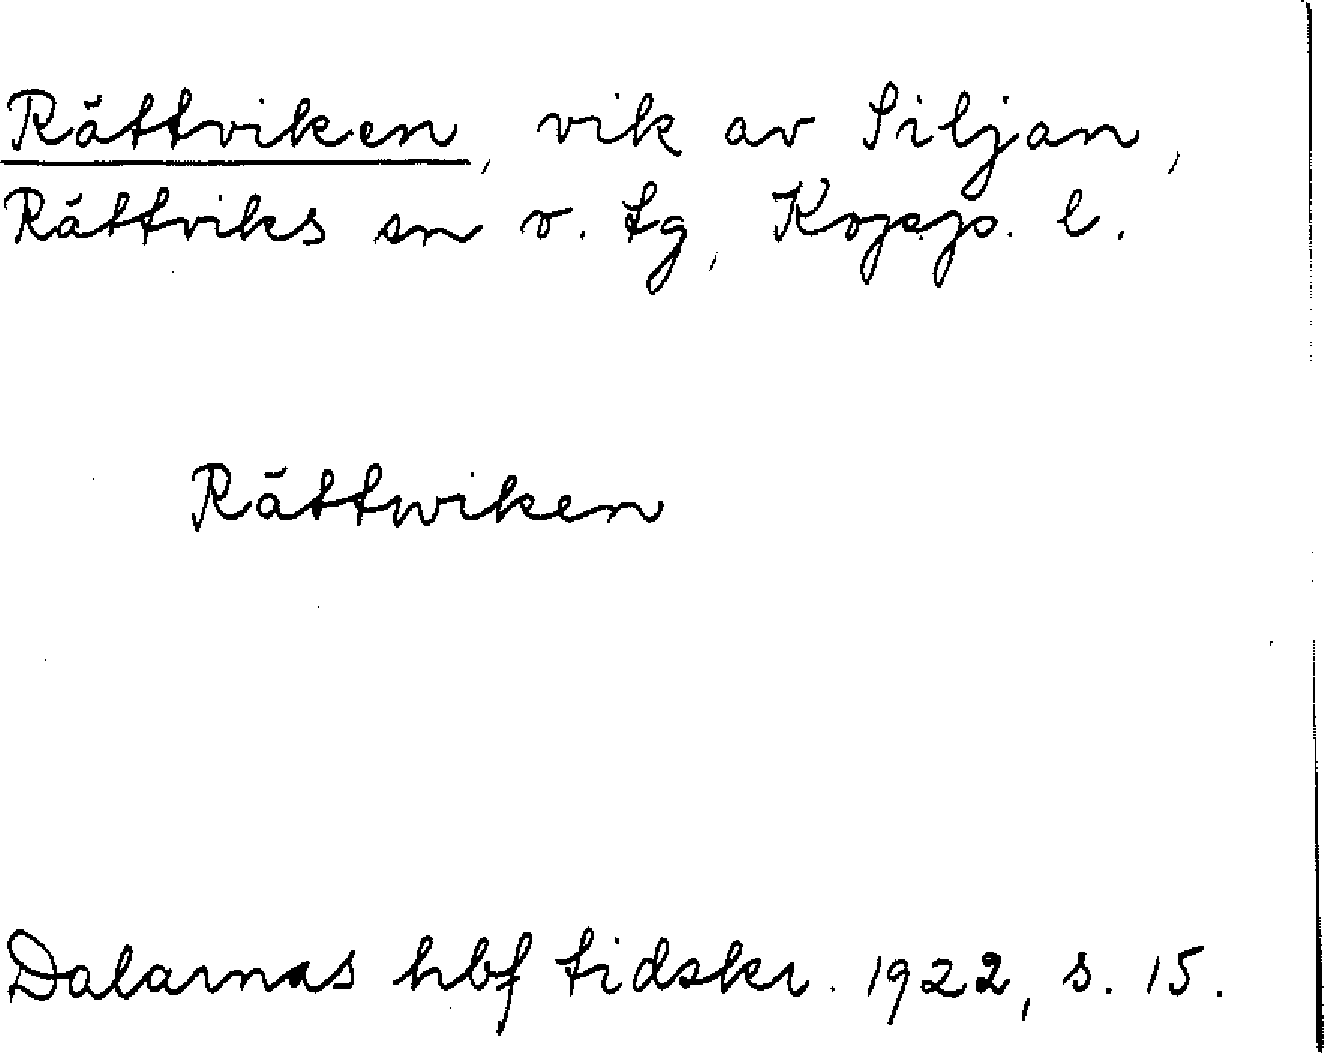 Rättviken, vik av Siljan,
Rättviks sn o. tg, Kopp. l.
Rättwiken
Dalarnas hbf tidskr. 1922, s. 15.